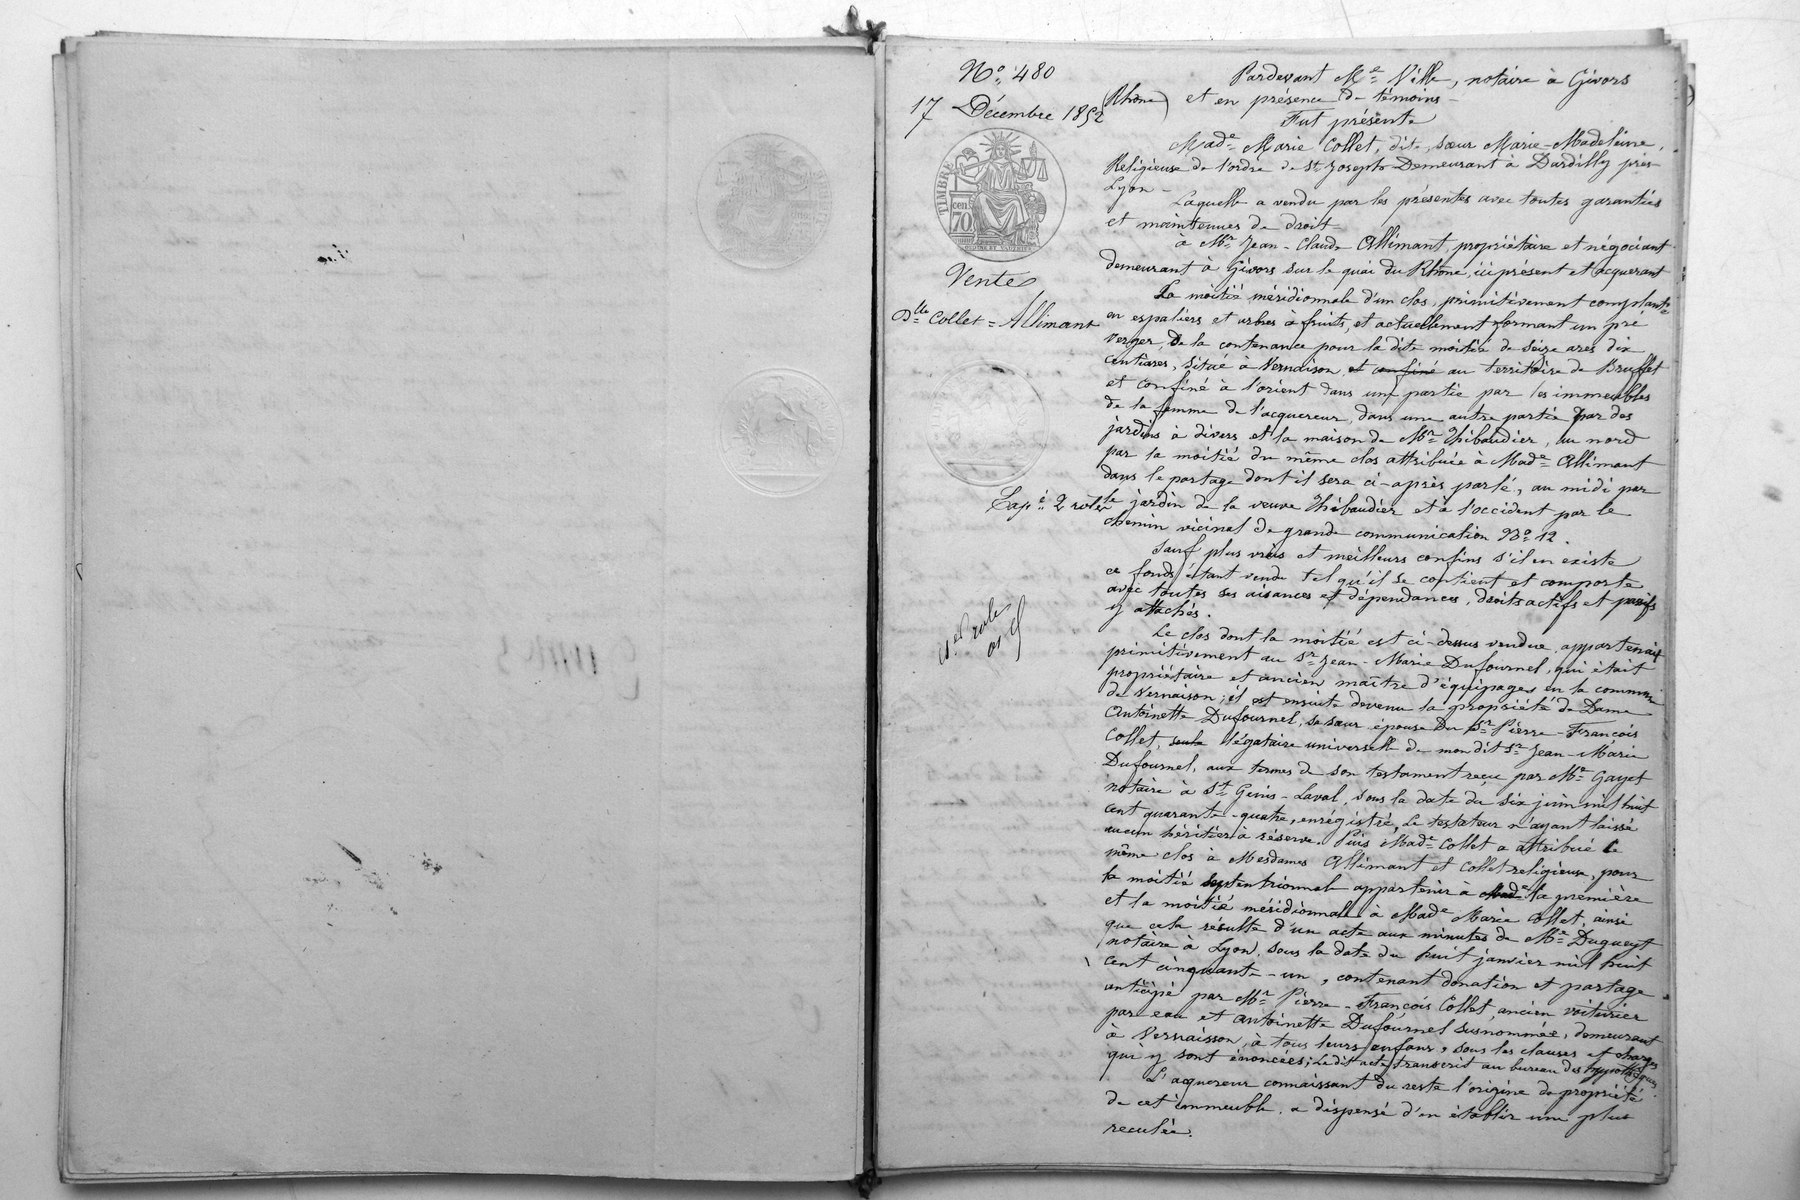 N° 480
17 Décembre 1852
TIMBRE
cen. 70
Vente
Dlle Collet = Allimant
Exp.é 2 rôles
1er rôle
Pardevant Me Ville, notaire à Givors
(Rhône) et en présence de témoins
Fut présente
Made Marie Collet, dite sœur Marie-Madeleine,
Religieuse de l'ordre de St Joseph Demeurant à Dardilly près
Lyon
Laquelle a vendu par les présentes avec toutes garanties
et maintenues de droit
à Mr Jean-Claude Allimant, propriétaire et négociant
demeurant à Givors sur le quai du Rhône, ici présent et acquerant
La moitié méridionale d'un clos, primitivement complanté
en espaliers et arbres à fruits, et actuellement formant un pré
verger, De la contenance pour la dite moitié de seize ares dix
centiares, situé à Vernaison et confiné au territoire de Bruffet
et confiné à l'orient dans une partie par les immeubles
de la femme de l'acquereur, dans une autre partie par des
jardins à divers et la maison de Mr Thibaudier, au nord
par la moitié du même clos attribuée à Made Allimant
dans le partage dont il sera ci-après parlé, au midi par
le jardin de la veuve Thibaudier et à l'occident par le
chemin vicinal de grande communication No 12.
Sauf plus vrais et meilleurs confins s'il en existe
ce fonds étant vendu tel qu'il se contient et comporte
avec toutes ses aisances et dépendances, droits actifs et passifs
y attachés.
Le clos dont la moitié est ci-dessus vendue, appartenait
primitivement au Sr Jean-Marie Dufournel, qui était
propriétaire et ancien maître d'équipages en la commune
de Vernaison; il est ensuite devenu la propriété de Dame
Antoinette Dufournel, sa sœur épouse du Sr Pierre-François
Collet, seule légataire universelle de mondit Sr Jean-Marie
Dufournel, aux termes de son testament reçu par Me Gayet
notaire à St Genis-Laval, sous la date du six juin mil huit
cent quarante-quatre, enrégistré, Le testateur n'ayant laissé
aucun héritier à réserve. Puis Made Collet a attribué le
même clos à Mesdames Allimant et Collet religieuse, pour
la moitié septentrionnale appartenir à Made la première
et la moitié méridionnale à Made Marie Collet, ainsi
que cela résulte d'un acte aux minutes de Me Dugueyt
notaire à Lyon, sous la date du huit janvier mil huit
cent cinquante-un, contenant donation et partage
anticipé par Mr Pierre-François Collet, ancien voiturier
par eau et Antoinette Dufournel susnommée, demeurant
à Vernaisson, à tous leurs enfans, sous les clauses et charges
qui y sont énoncées; Le dit acte transcrit au bureau des hypothèques.
L'acquereur connaissant du reste l'origine de propriété
de cet immeuble, a dispensé d'en établir une plus
reculée.